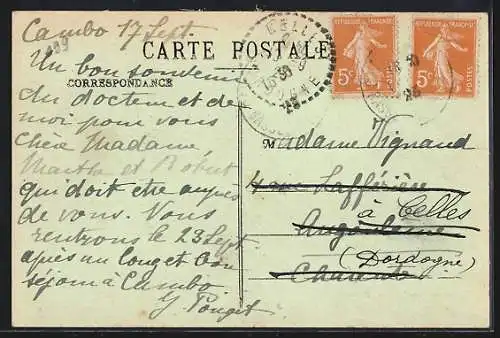 Cambo 17 Sept.
389
CARTE POSTALE
CORRESPONDANCE
Un bon souvenir
du docteur et de
moi pour vous
Chère Madame,
Marthe et Robert
qui doit être auprès
de vous. Vous
rentrons le 23 Sept
après un long et bon
séjour à Cambo
Y. Pouget
CELLES
REPUBLIQUE FRANÇAISE
5c
POSTES
REPUBLIQUE FRANÇAISE
5c
POSTES
M
Madame Vignaud
Laferrière
à Celles
Angoulême
(Dordogne)
Charente